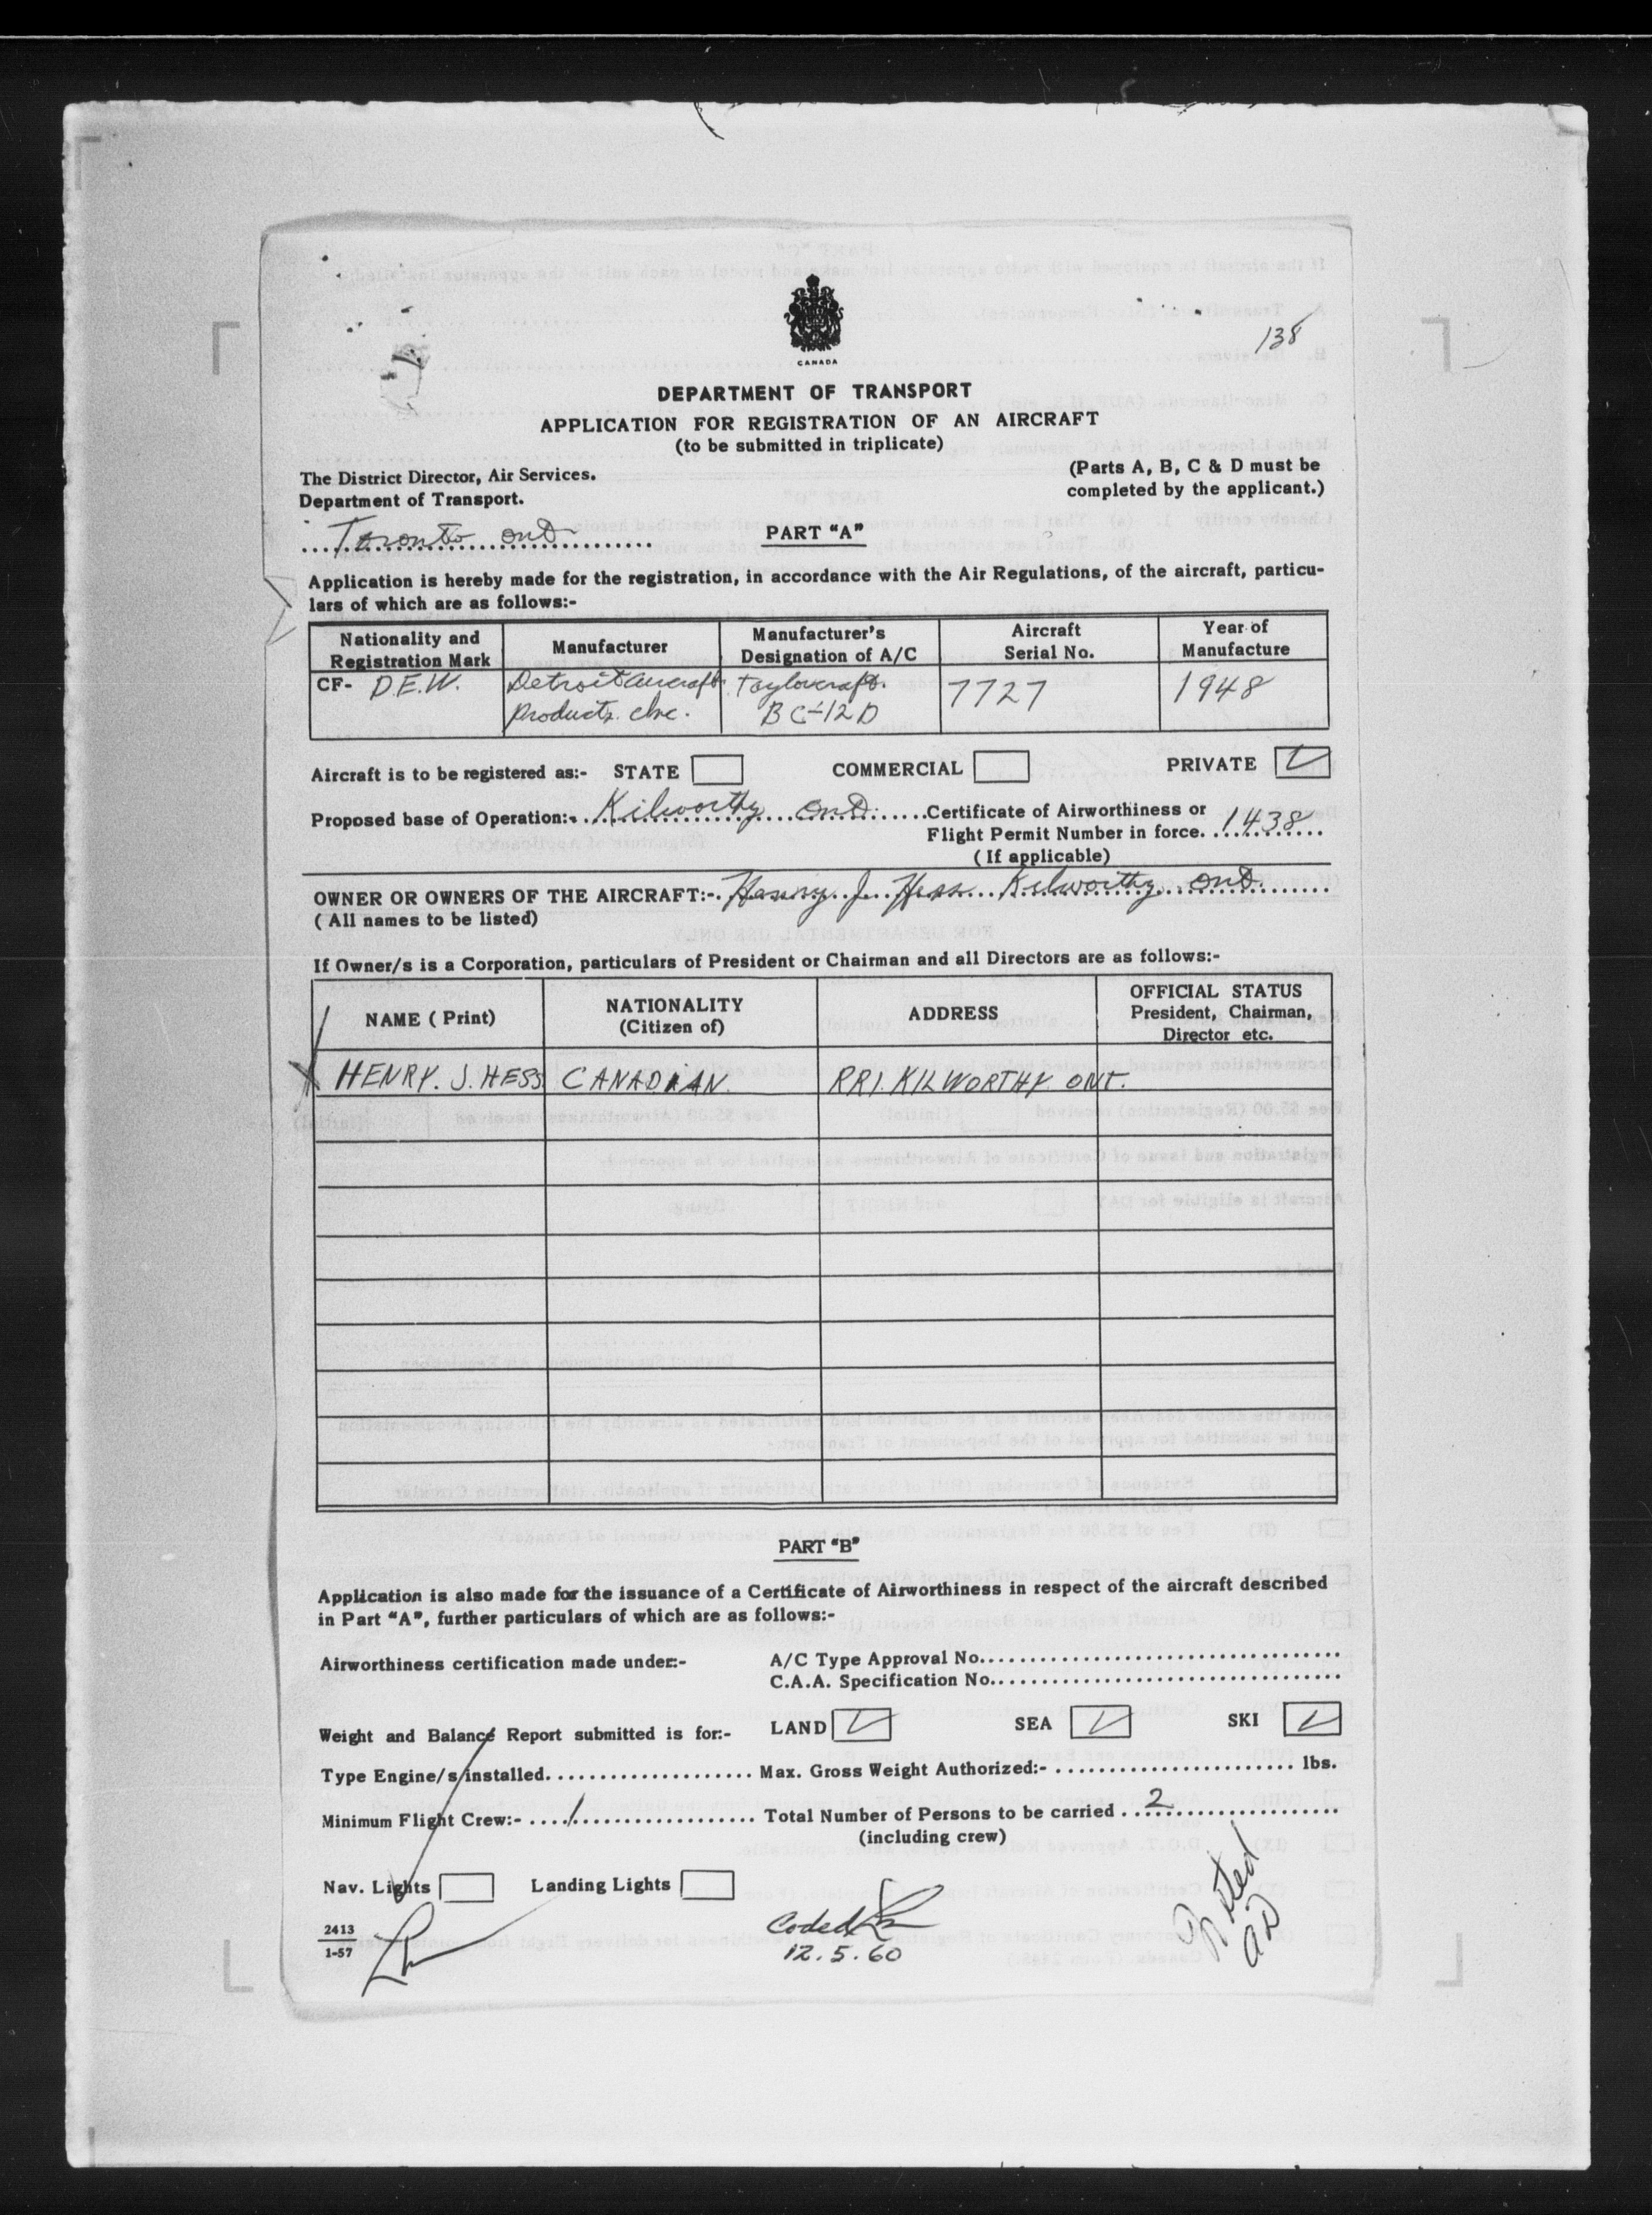 CANADA
138
DEPARTMENT OF TRANSPORT
APPLICATION FOR REGISTRATION OF AN AIRCRAFT
(to be submitted in triplicate)
The District Director, Air Services.
Department of Transport.
(Parts A, B, C & D must be
completed by the applicant.)
Toronto Ont
PART "A"
Application is hereby made for the registration, in accordance with the Air Regulations, of the aircraft, particu-
lars of which are as follows:-
Nationality and Registration Mark Manufacturer Manufacturer's Designation of A/C Aircraft Serial No. Year of Manufacture
CF- D.E.W. Detroit Aircraft Taylorcraft. 7727 1948
Products. Inc. BC-12D
Aircraft is to be registered as:- STATE COMMERCIAL PRIVATE
Proposed base of Operation:- Kilworthy Ont. Certificate of Airworthiness or
Flight Permit Number in force. 1438
(If applicable)
OWNER OR OWNERS OF THE AIRCRAFT:- Henry J. Hess Kilworthy Ont.
(All names to be listed)
If Owner/s is a Corporation, particulars of President or Chairman and all Directors are as follows:-
NAME (Print) NATIONALITY (Citizen of) ADDRESS OFFICIAL STATUS President, Chairman, Director etc.
HENRY. J. HESS CANADIAN. RR1. KILWORTHY ONT.
PART "B"
Application is also made for the issuance of a Certificate of Airworthiness in respect of the aircraft described
in Part "A", further particulars of which are as follows:-
Airworthiness certification made under:- A/C Type Approval No.
C.A.A. Specification No.
Weight and Balance Report submitted is for:- LAND SEA SKI
Type Engine/s installed. Max. Gross Weight Authorized:- lbs.
Minimum Flight Crew:- 1 Total Number of Persons to be carried 2
(including crew)
Nav. Lights Landing Lights
2413
1-57
Coded
12.5.60